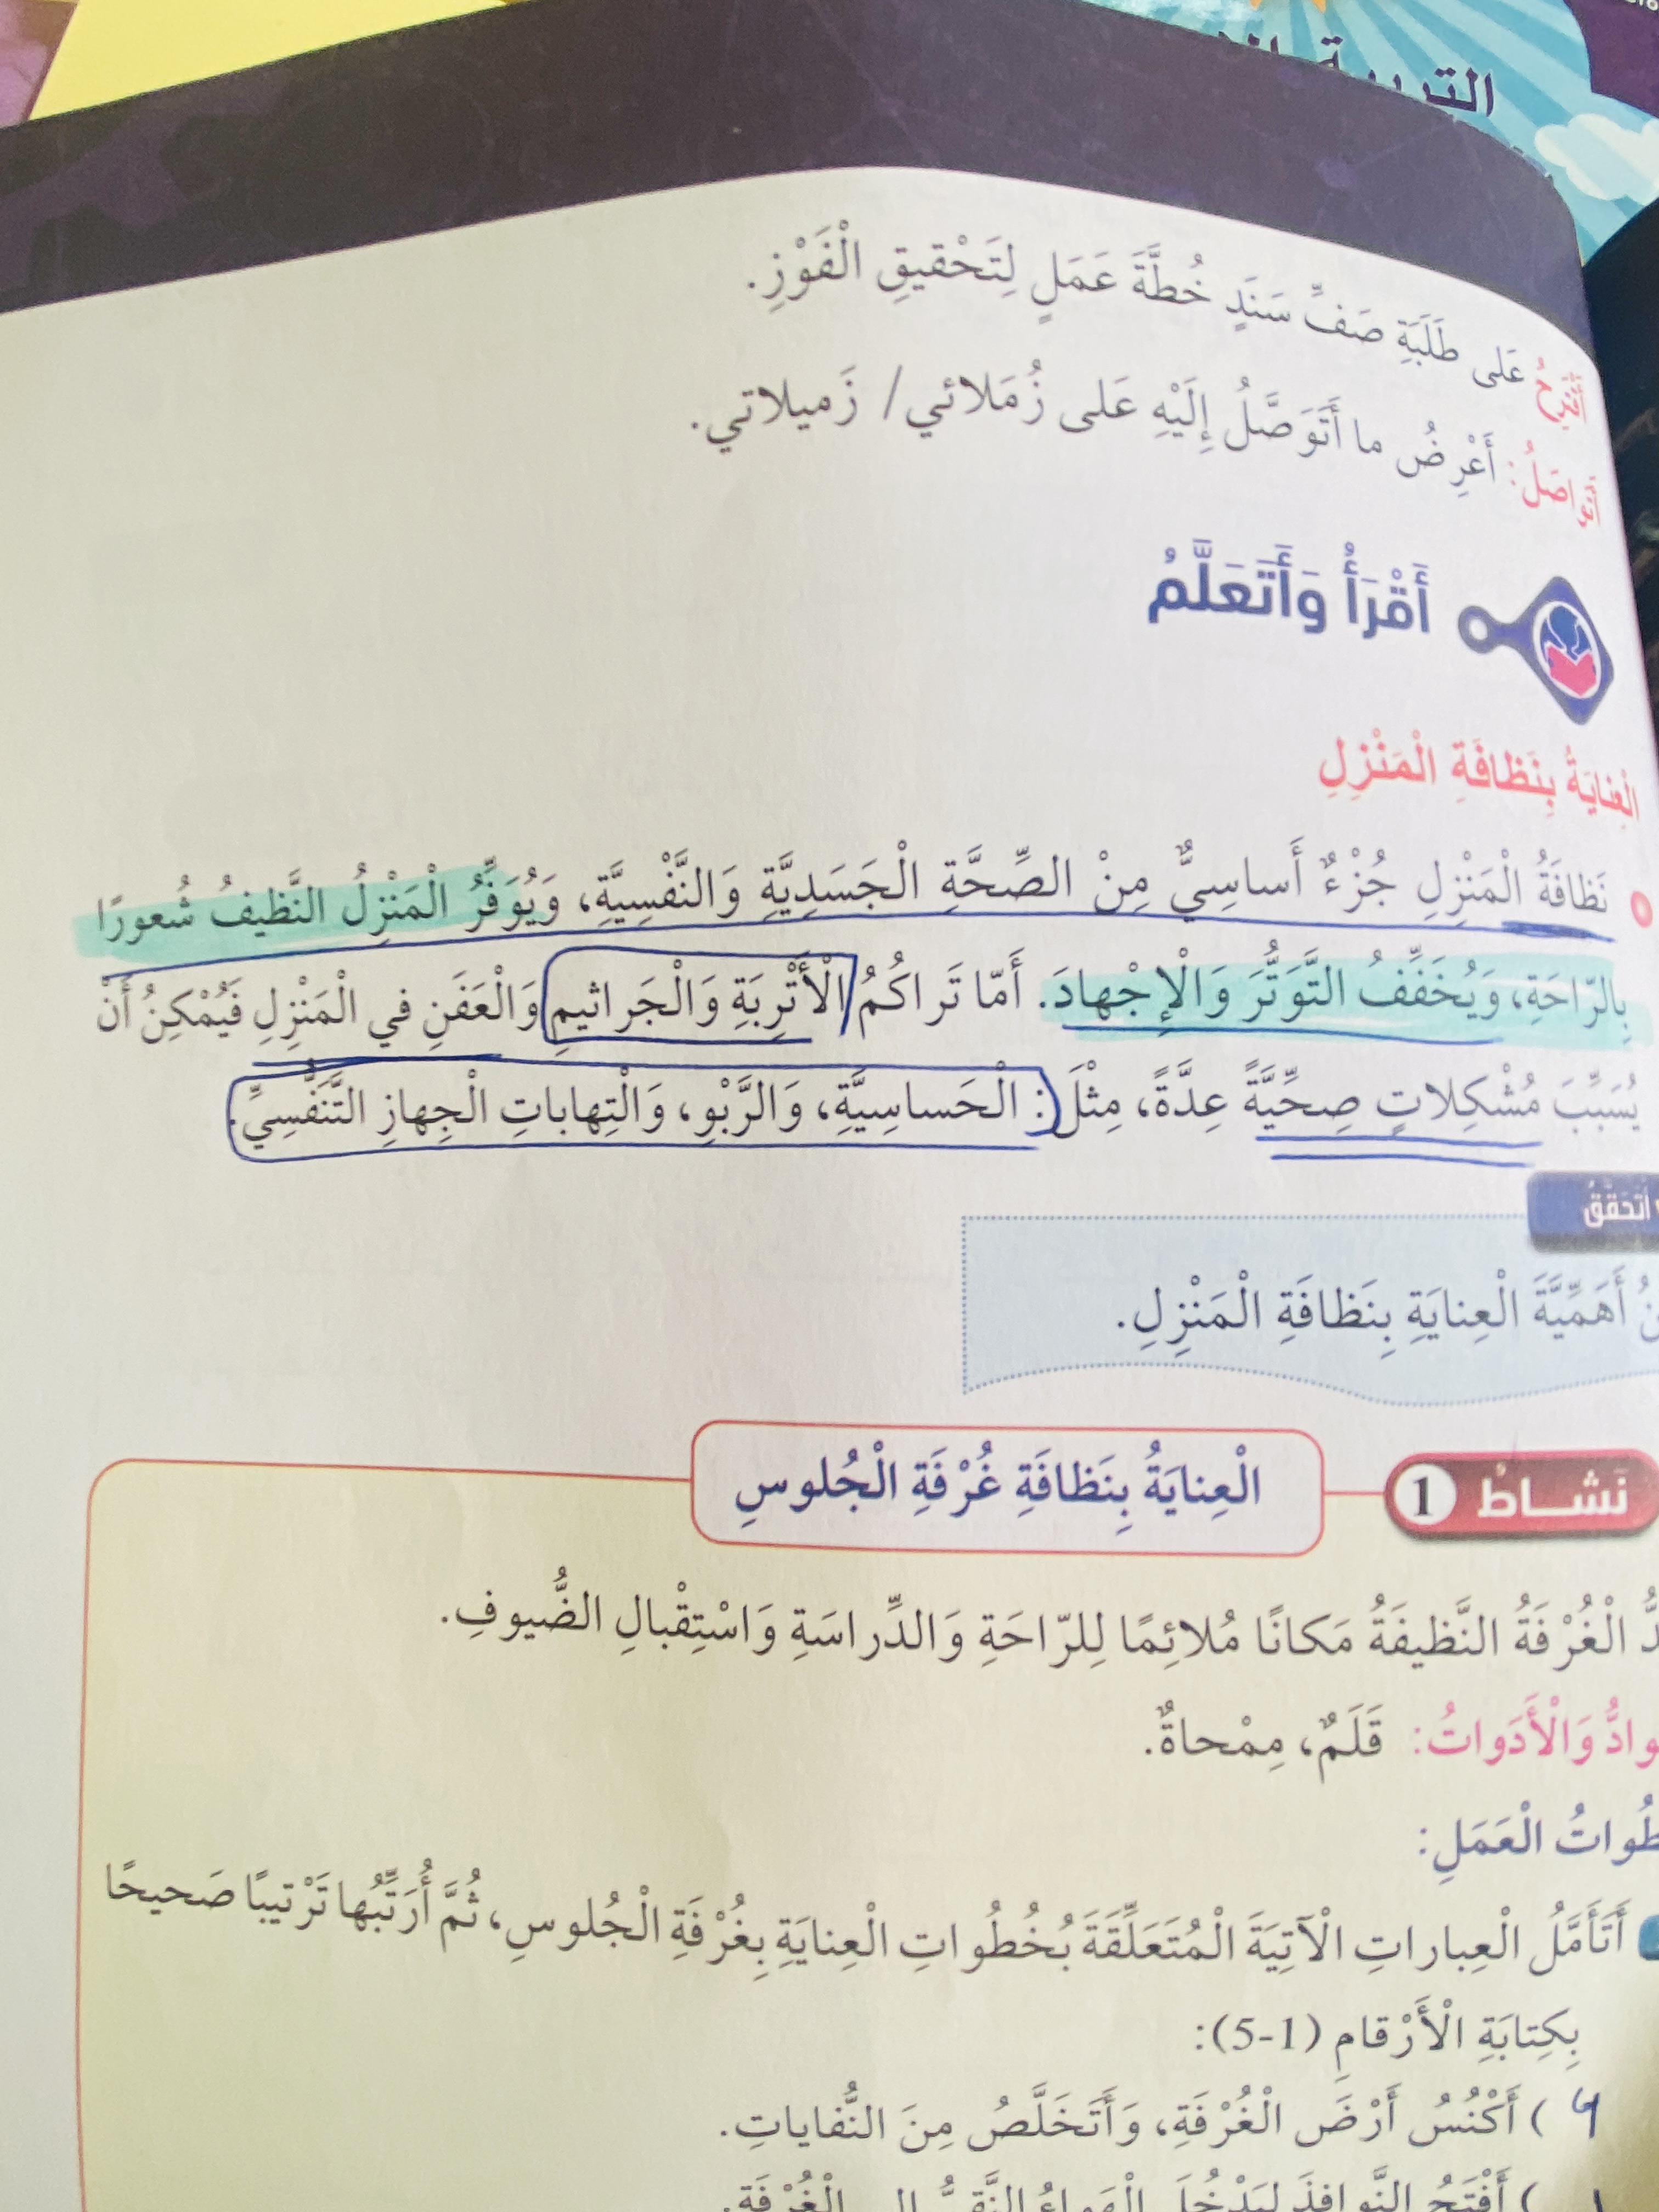 التربية
أَقْتَرِحُ عَلى طَلَبَةِ صَفِّ سَنَدٍ خُطَّةَ عَمَلٍ لِتَحْقيقِ الْفَوْزِ.
أَتَواصَلُ: أَعْرِضُ ما أَتَوَصَّلُ إِلَيْهِ عَلى زُمَلائي/ زَميلاتي.
أَقْرَأُ وَأَتَعَلَّمُ
الْعِنايَةُ بِنَظافَةِ الْمَنْزِلِ
نَظافَةُ الْمَنْزِلِ جُزْءٌ أَساسِيٌّ مِنْ الصِّحَّةِ الْجَسَدِيَّةِ وَالنَّفْسِيَّةِ، وَيُوَفِّرُ الْمَنْزِلُ النَّظيفُ شُعورًا
بِالرّاحَةِ، وَيُخَفِّفُ التَّوَتُّرَ وَالْإِجْهادَ. أَمّا تَراكُمُ الْأَتْرِبَةِ وَالْجَراثيمِ وَالْعَفَنِ في الْمَنْزِلِ فَيُمْكِنُ أَنْ
يُسَبِّبَ مُشْكِلاتٍ صِحِّيَّةً عِدَّةً، مِثْلَ: الْحَساسِيَّةِ، وَالرَّبْوِ، وَالْتِهاباتِ الْجِهازِ التَّنَفُّسِيِّ.
أَتَحَقَّقُ
أَهَمِّيَّةَ الْعِنايَةِ بِنَظافَةِ الْمَنْزِلِ.
نَشاطٌ 1
الْعِنايَةُ بِنَظافَةِ غُرْفَةِ الْجُلوسِ
الْغُرْفَةُ النَّظيفَةُ مَكانًا مُلائِمًا لِلرّاحَةِ وَالدِّراسَةِ وَاسْتِقْبالِ الضُّيوفِ.
وادُّ وَالْأَدَواتُ: قَلَمٌ، مِمْحاةٌ.
طُواتُ الْعَمَلِ:
أَتَأَمَّلُ الْعِباراتِ الْآتِيَةَ الْمُتَعَلِّقَةَ بُخُطُواتِ الْعِنايَةِ بِغُرْفَةِ الْجُلوسِ، ثُمَّ أُرَتِّبُها تَرْتيبًا صَحيحًا
بِكِتابَةِ الْأَرْقامِ (1-5):
) أَكْنُسُ أَرْضَ الْغُرْفَةِ، وَأَتَخَلَّصُ مِنَ النُّفاياتِ.
) أَفْتَحُ النَّوافِذَ لِيَدْخُلَ الْهَواءُ النَّقِيُّ إِلى الْغُرْفَةِ.